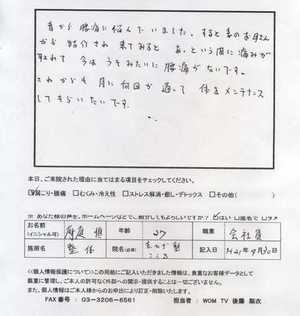 昔から腰痛に悩んでいました。すると妻のお母さん
から紹介され来てみると あっという間に痛みが
取れて 今は うそみたいに 腰痛が ないです。
これからも 月に何回か 通って 体をメンテナンス
してもらいたいです。
本日、ご来院された理由に当てはまる項目をチェックしてください。
肩こり・腰痛 □むくみ・冷え性 □ストレス解消・癒し・デトックス □その他( )
※あなた様の声を、ホームページなどでご紹介してもよろしいですか?
お名前 年齢 27 職業 会社員
(イニシャル可)
施術名 整体 院名(必須) 記入日
<<個人情報保護について>>この用紙にご記入いただきました情報は、貴重なお客様データとして
厳重に管理し、ご本人の許可なく外部への開示・提供することは一切ございません。
また、個人情報はご本人様からのお申出により訂正・削除いたします。
FAX番号 : 03-3206-6561 担当者 : WOM TV 後藤